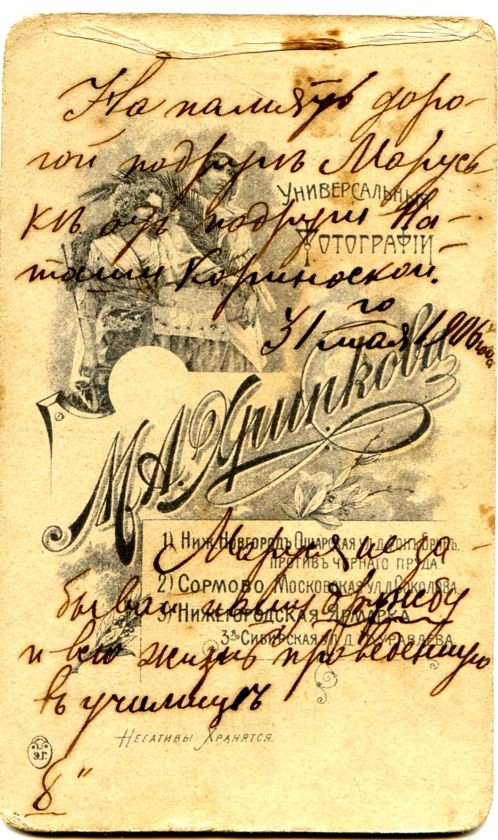 На память доро-
гой подругѣ Марусь-
кѣ отъ подруги На-
таліи
31го мая 1906 года
Универсальныя
Фотографіи
М.А. Хрипкова
1) Ниж. Новгородъ Ошарская ул. д.
противъ Чернаго пруда.
2) Сормово Московская ул. д. Соколова.
3) Нижегородская Ярмарка
3я Сибирская ул. д. Журавлева
Маруся не за-
бывай нашу дружбу
и всю жизнь проведенную
въ училищѣ
Негативы хранятся.
Э.Г.
8"